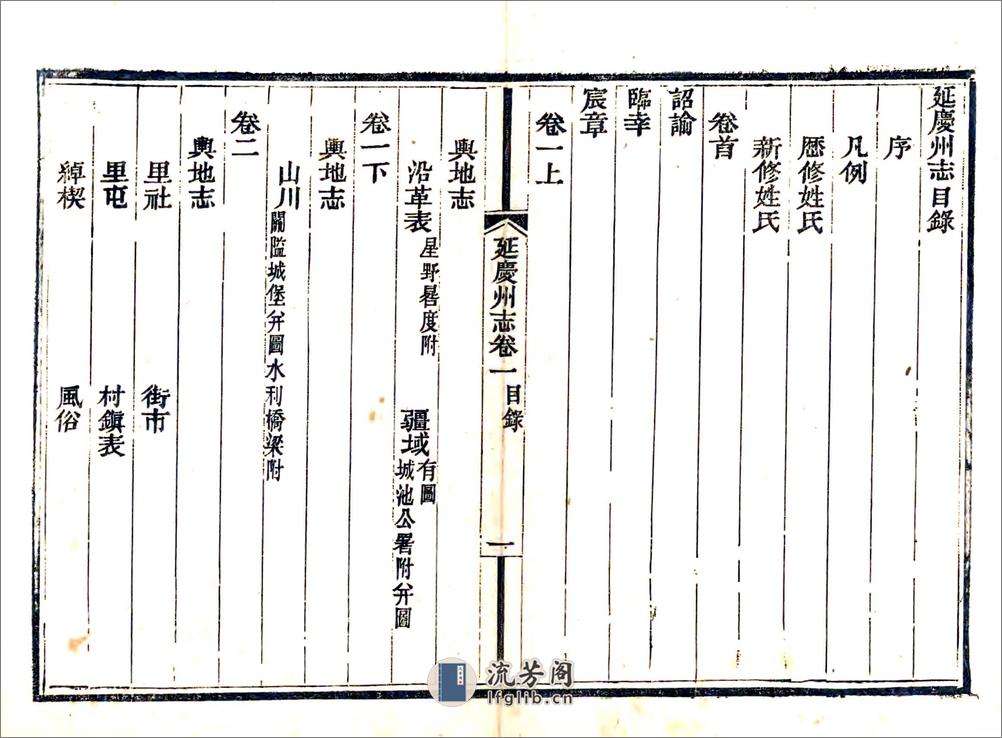 延慶州志目錄
序
凡例
歷修姓氏
新修姓氏
卷首
詔諭
臨幸
宸章
卷一上
延慶州志卷一 目錄 一
輿地志
沿革表 星野晷度附 疆域 有圖 城池公署附弁圖
卷一下
輿地志
山川 關隘城堡弁圖水利橋梁附
卷二
輿地志
里社 街市
里屯 村鎭表
綽楔 風俗
流芳阁
lfglib.cn